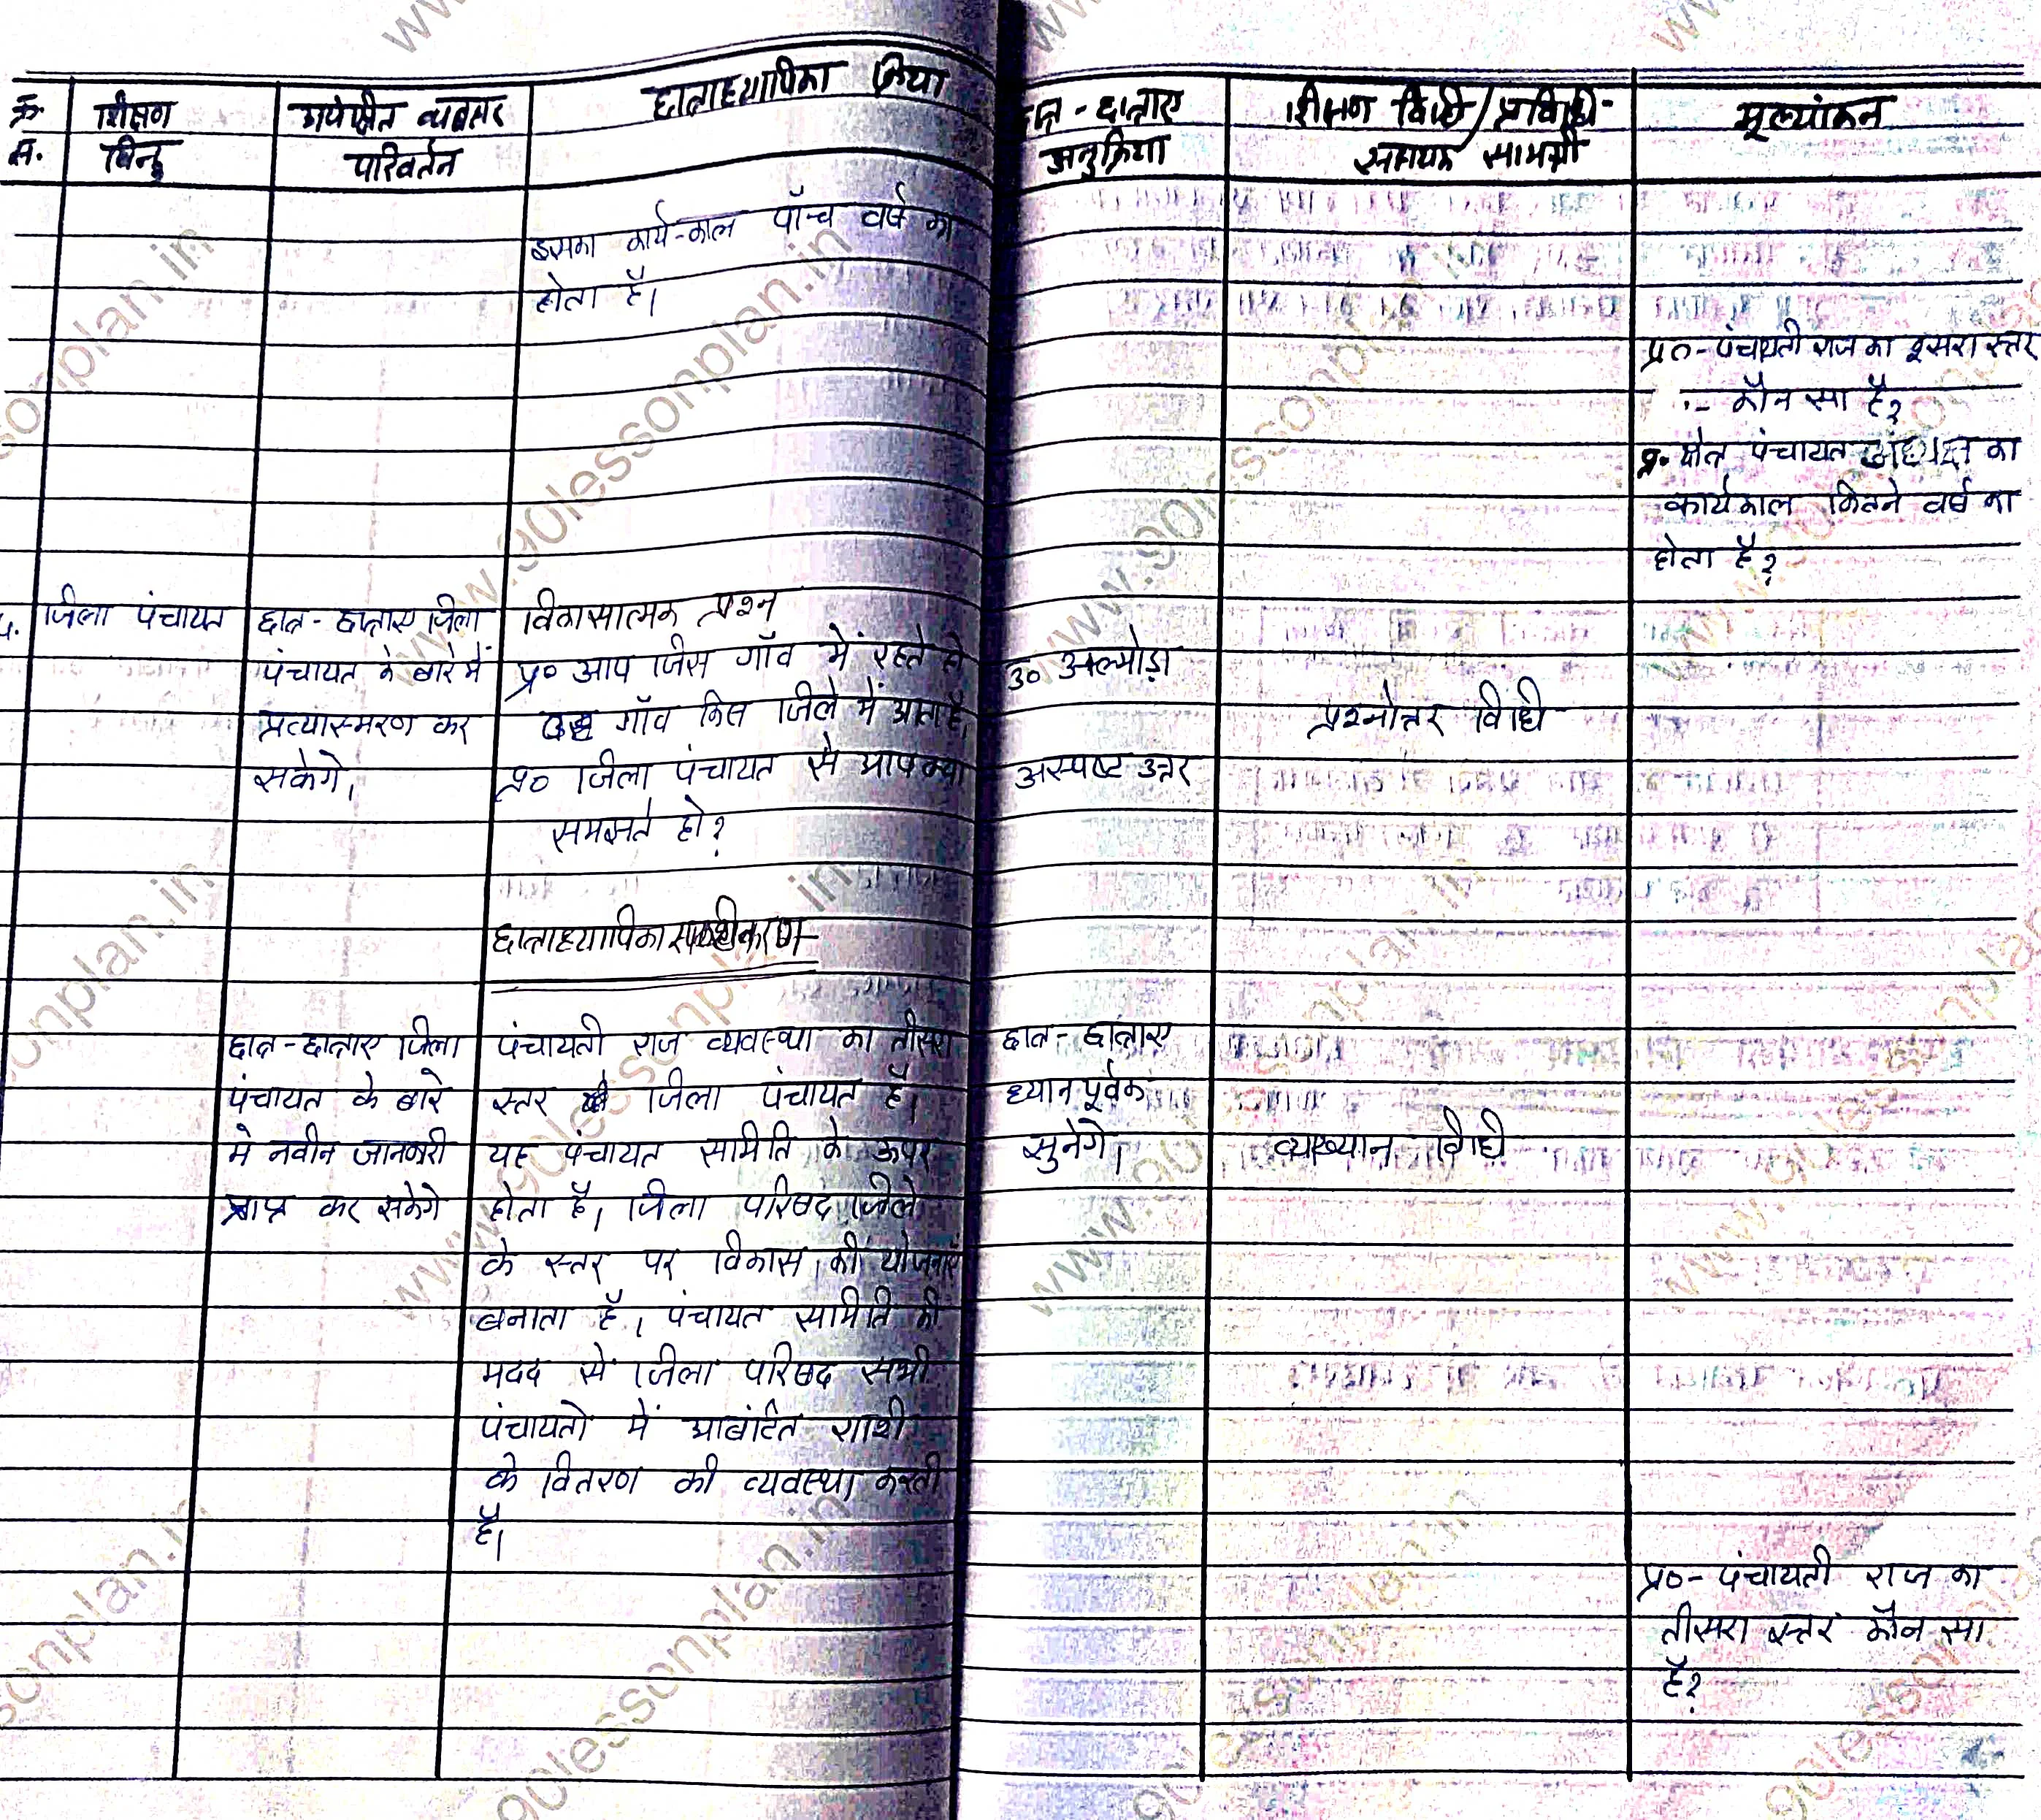 क्र. सं.
शिक्षण बिन्दु
अपेक्षित व्यवहार परिवर्तन
छात्राध्यापिका क्रिया
छात्र - छात्राए अनुक्रिया
शिक्षण विधि / प्रविधि - सहायक सामग्री
मूल्यांकन
इसका कार्य-काल पाँच वर्ष का
होता है।
प्र०- पंचायती राज का दूसरा स्तर
- कौन सा है?
प्र. क्षेत्र पंचायत अध्यक्ष का
कार्यकाल कितने वर्ष का
होता है?
जिला पंचायत
छात्र - छात्राए जिला
पंचायत के बारे में
प्रत्यास्मरण कर
सकेगे।
विकासात्मक प्रश्न
प्र० आप जिस गाँव में रहते हो
वह गाँव किस जिले में आता है।
प्र० जिला पंचायत से आप क्या
समझते हो?
उ० अल्मोड़ा
अस्पष्ट उत्तर
प्रश्नोत्तर विधि
छात्राध्यापिका स्पष्टीकरण -
छात्र - छात्राए जिला
पंचायत के बारे
मे नवीन जानकारी
प्राप्त कर सकेगे
पंचायती राज व्यवस्था का तीसरा
स्तर जिला पंचायत है।
यह पंचायत समिति के ऊपर
होता है। जिला परिषद जिले
के स्तर पर विकास की योजनाएं
बनाता है। पंचायत समिति की
मदद से जिला परिषद सभी
पंचायतो में आबंटित राशी
के वितरण की व्यवस्था करती
है।
छात्र - छात्राए
ध्यान पूर्वक
सुनेगे।
व्याख्यान विधि
प्र०- पंचायती राज का
तीसरा स्तर कौन सा
है?
www.90lessonplan.in